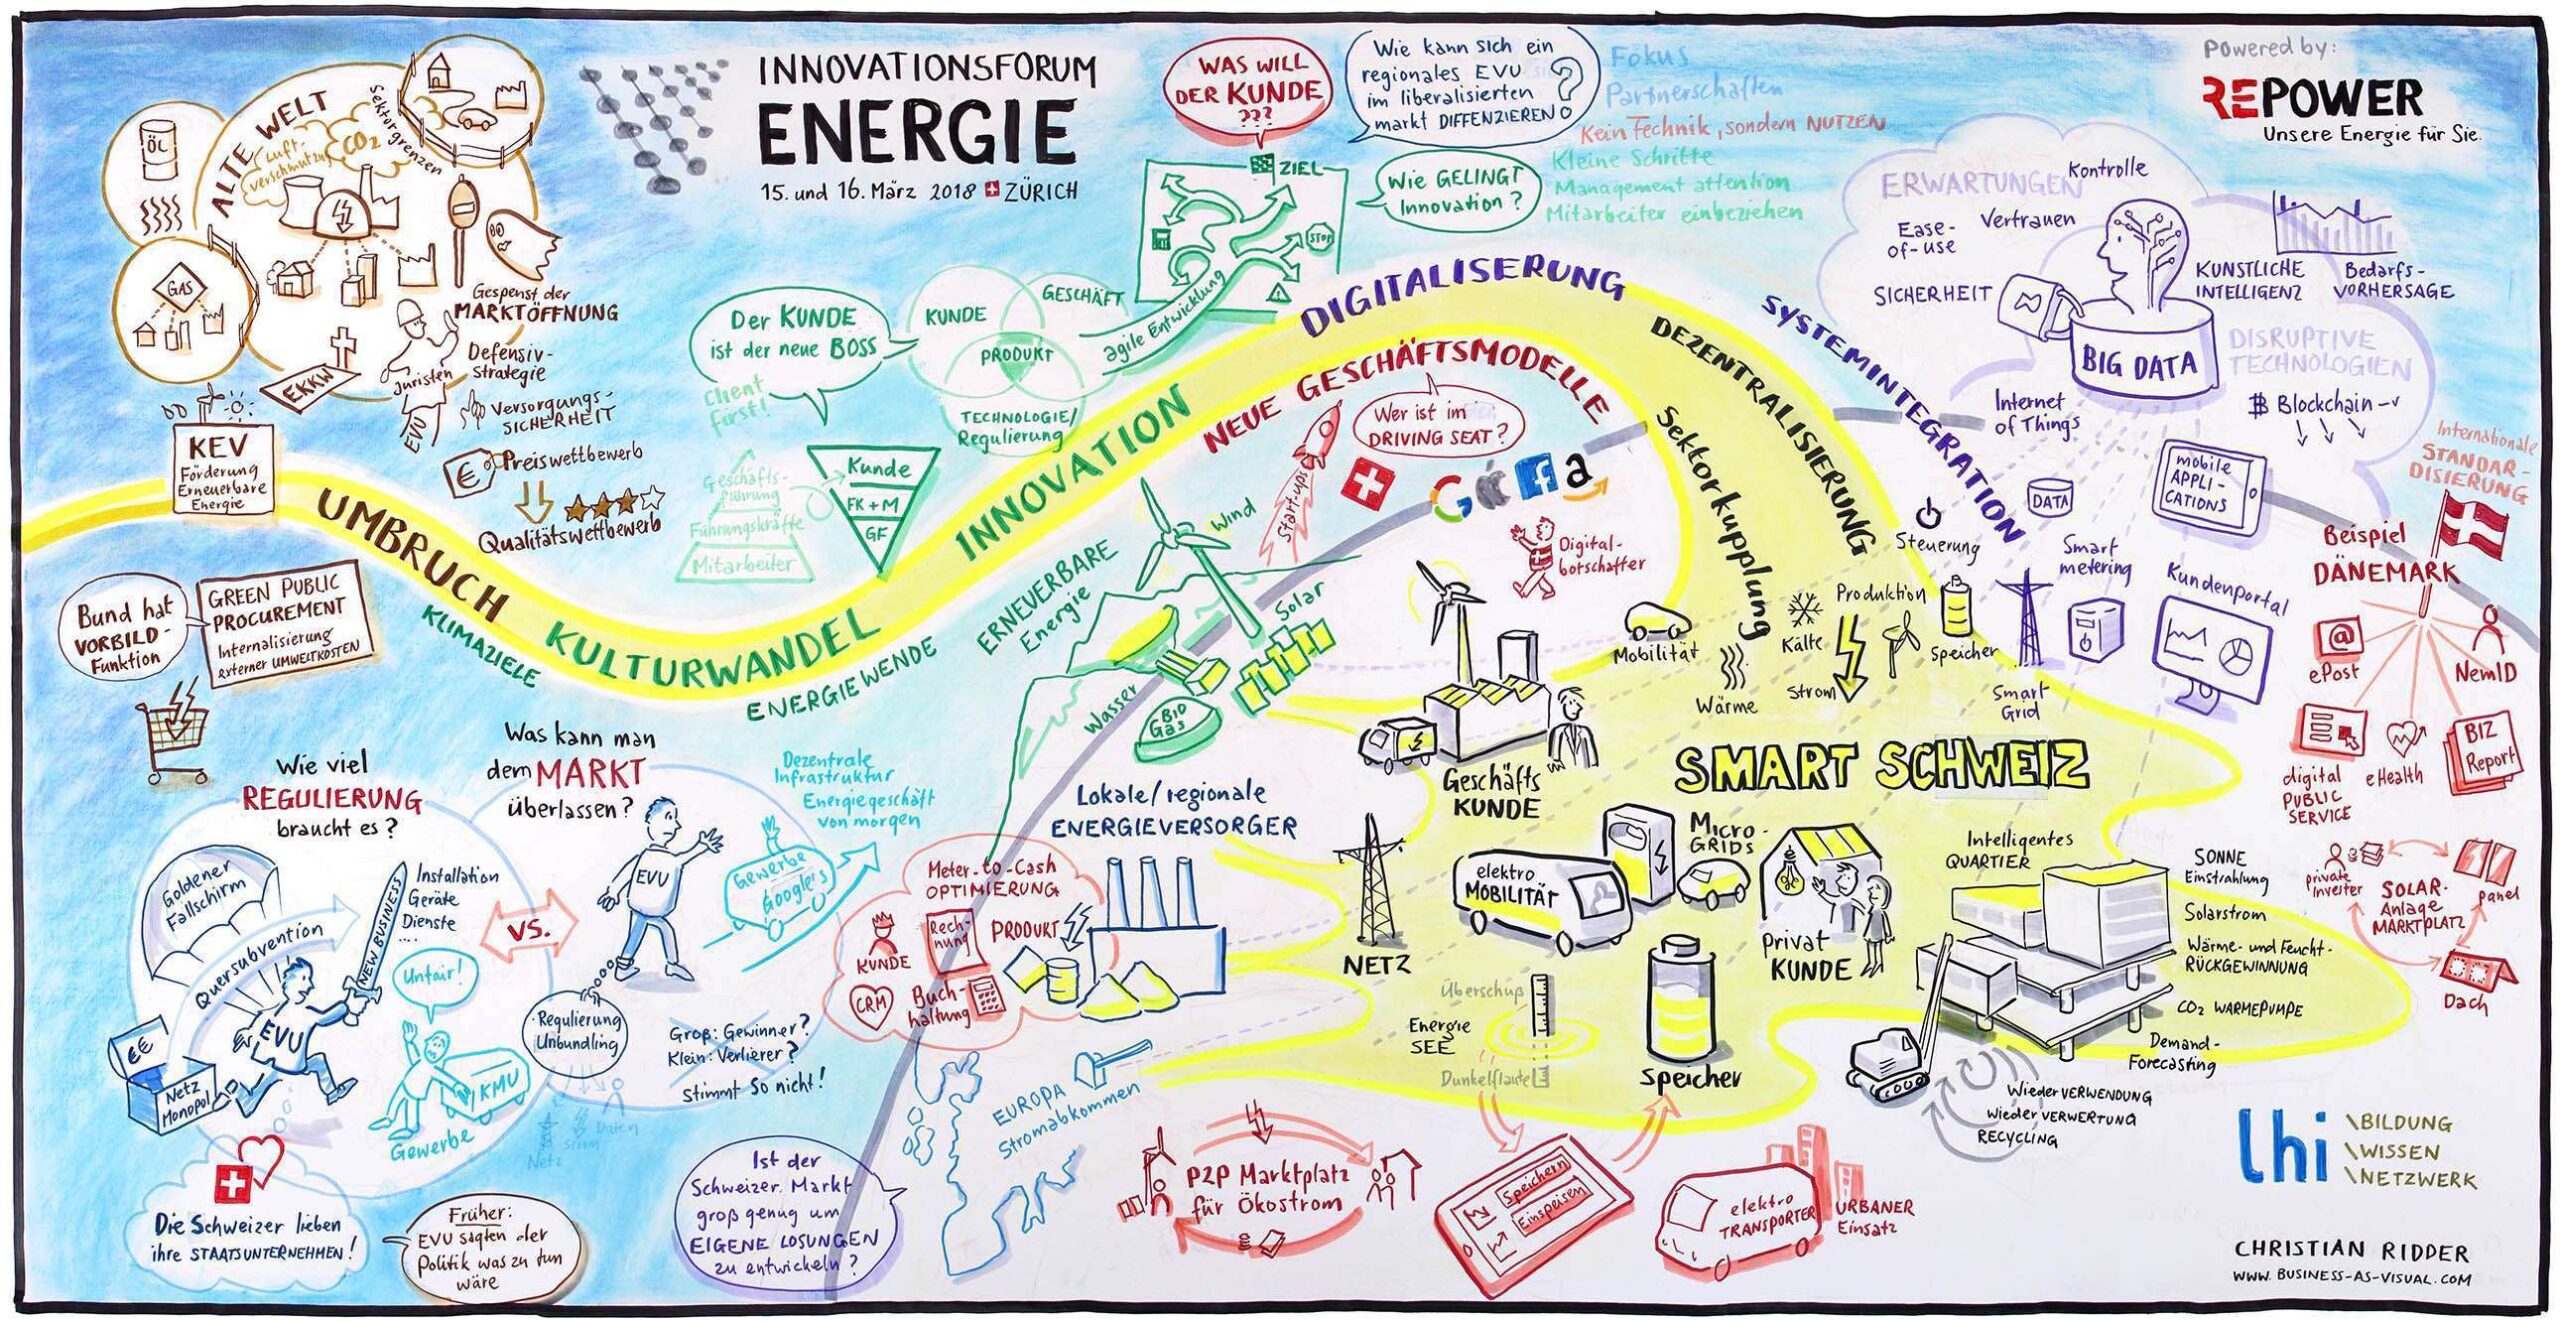 INNOVATIONSFORUM
ENERGIE
15. und 16. März 2018 ZÜRICH
Powered by:
REPOWER
Unsere Energie für Sie.
ALTE WELT
Luft-
verschmutzung
CO2
Sektorgrenzen
ÖL
GAS
Gespenst der
MARKTÖFFNUNG
EKKW
Juristen
EVU
Defensiv-
Strategie
Versorgungs-
SICHERHEIT
€ Preiswettbewerb
Qualitätswettbewerb
KEV
Förderung
Erneuerbare
Energie
Bund hat
VORBILD-
Funktion
GREEN PUBLIC
PROCUREMENT
Internalisierung
externer UMWELTKOSTEN
UMBRUCH
KULTURWANDEL
INNOVATION
DIGITALISERUNG
KLIMAZIELE
ENERGIEWENDE
NEUE GESCHÄFTSMODELLE
DEZENTRALISIERUNG
SYSTEMINTEGRATION
Sektorkupplung
Der KUNDE
ist der neue BOSS
Client
first!
KUNDE
GESCHÄFT
PRODUKT
TECHNOLOGIE/
Regulierung
agile Entwicklung
Geschäfts-
führung
Führungskräfte
Mitarbeiter
Kunde
FK + M
GF
WAS WILL
DER KUNDE
???
ZIEL
STOP
Wie kann sich ein
regionales EVU
im liberalisierten
markt DIFFENZIEREN
?
Fokus
Partnerschaften
Kein Technik, sondern NUTZEN
Wie GELINGT
Innovation?
Kleine Schritte
Management attention
Mitarbeiter einbeziehen
Wer ist im
DRIVING SEAT?
Start-ups
G f a
Digital-
botschafter
ERNEUERBARE
Energie
Wind
Solar
Wasser
BIO
Gas
ERWARTUNGEN
Kontrolle
Vertrauen
Ease-
of-use
SICHERHEIT
KÜNSTLICHE
INTELLIGENZ
Bedarfs-
VORHERSAGE
BIG DATA
DISRUPTIVE
TECHNOLOGIEN
Internet
of Things
Blockchain
mobile
APPLI-
CATIONS
DATA
Steuerung
Smart
metering
Kundenportal
Smart
Grid
Speicher
Produktion
Kälte
Strom
Wärme
Mobilität
Internationale
STANDAR-
DISIERUNG
Beispiel
DÄNEMARK
@
ePost
NemID
digital
PUBLIC
SERVICE
eHealth
BIZ
Report
private
Invester
SOLAR-
Anlage
MARKTPLATZ
panel
Dach
SMART SCHWEIZ
Geschäfts
KUNDE
NETZ
elektro
MOBILITÄT
MICRO-
GRIDS
privat
KUNDE
Speicher
Überschuß
Energie
SEE
Dunkelflaute
Intelligentes
QUARTIER
SONNE
Einstrahlung
Solarstrom
Wärme- und Feucht-
RÜCKGEWINNUNG
CO2 WÄRMEPUMPE
Demand-
Forecasting
WiederVERWENDUNG
WiederVERWERTUNG
RECYCLING
Wie viel
REGULIERUNG
braucht es?
Was kann man
dem MARKT
überlassen?
Goldener
Fallschirm
Quersubvention
NEW BUSINESS
Installation
Geräte
Dienste
....
EVU
€€
Netz
Monopol
Unfair!
KMU
Gewerbe
VS.
EVU
Regulierung
Unbundling
Netz
Strom
Daten
Dezentrale
Infrastruktur
Energiegeschäft
von morgen
Gewerbe
Google's
Groß: Gewinner?
Klein: Verlierer?
Stimmt so nicht!
Die Schweizer lieben
ihre STAATSUNTERNEHMEN!
Früher:
EVU sagten der
Politik was zu tun
wäre
Ist der
Schweizer Markt
groß genug um
EIGENE LÖSUNGEN
zu entwickeln?
Lokale/regionale
ENERGIEVERSORGER
Meter-to-Cash
OPTIMIERUNG
KUNDE
Rech-
nung
PRODUKT
CRM
Buch-
haltung
EUROPA
Stromabkommen
P2P Marktplatz
für Ökostrom
Speichern
Einspeisen
elektro
TRANSPORTER
URBANER
Einsatz
lhi
\BILDUNG
\WISSEN
\NETZWERK
CHRISTIAN RIDDER
WWW.BUSINESS-AS-VISUAL.COM